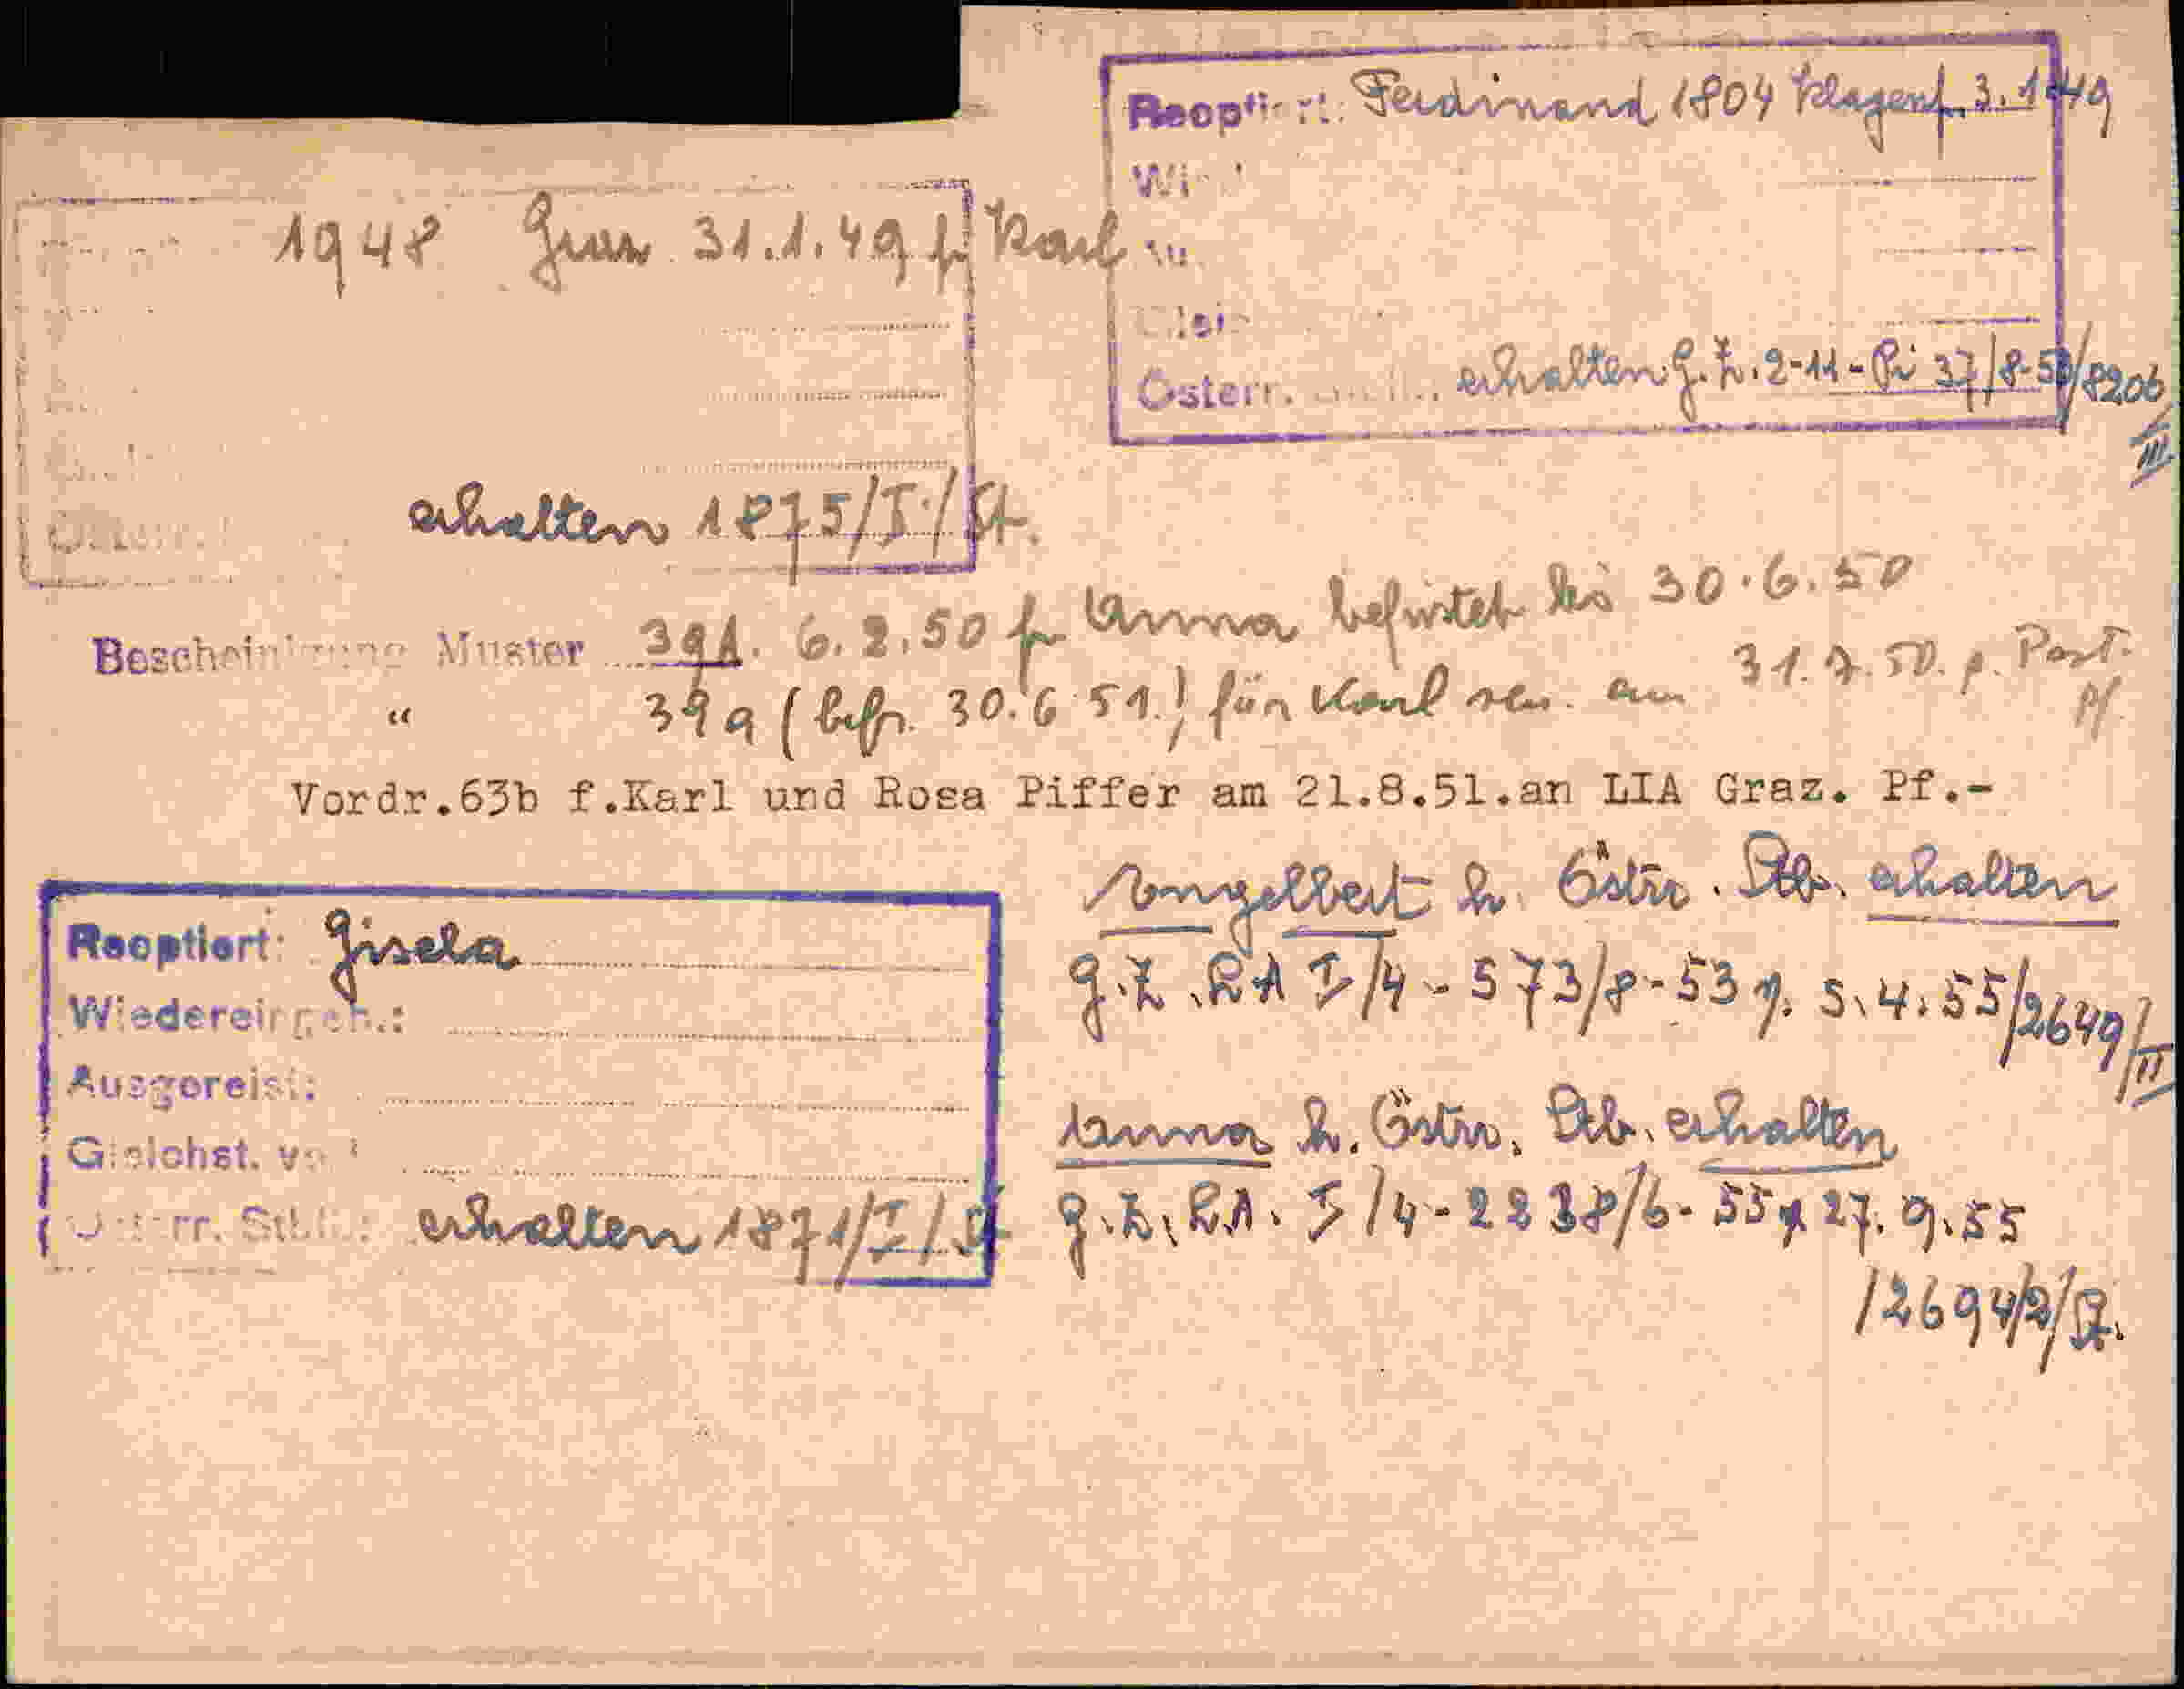 Reoptiert: Ferdinand 1804 Klagenf. 3.1.49
Österr. erhalten g.Z. 2-11-Pi 37/8-50/8206/III
1948 Graz 31.1.49 f. Karl
Österr. erhalten 1875/I/St.
Bescheinigung Muster 39A. 6.2.50 f. Anna befristet bis 30.6.50
" 39a (befr. 30.6.51.) für Karl sen. am 31.7.50. p. Post. Pf.
Vordr.63b f.Karl und Rosa Piffer am 21.8.51.an LIA Graz. Pf.-
Reoptiert: Gisela
Wiedereingeb.:
Ausgereist:
Gleichst. v.
Österr. Stb.: erhalten 1871/I/St
Engelbert h. Östrr. Stb. erhalten
g.Z. LA I/4-573/8-53 v. 5.4.55/2649/II
Anna h. Östrr. Stb. erhalten
g.Z. LA. I/4-2238/6-55 v 27.9.55
/2694/2/